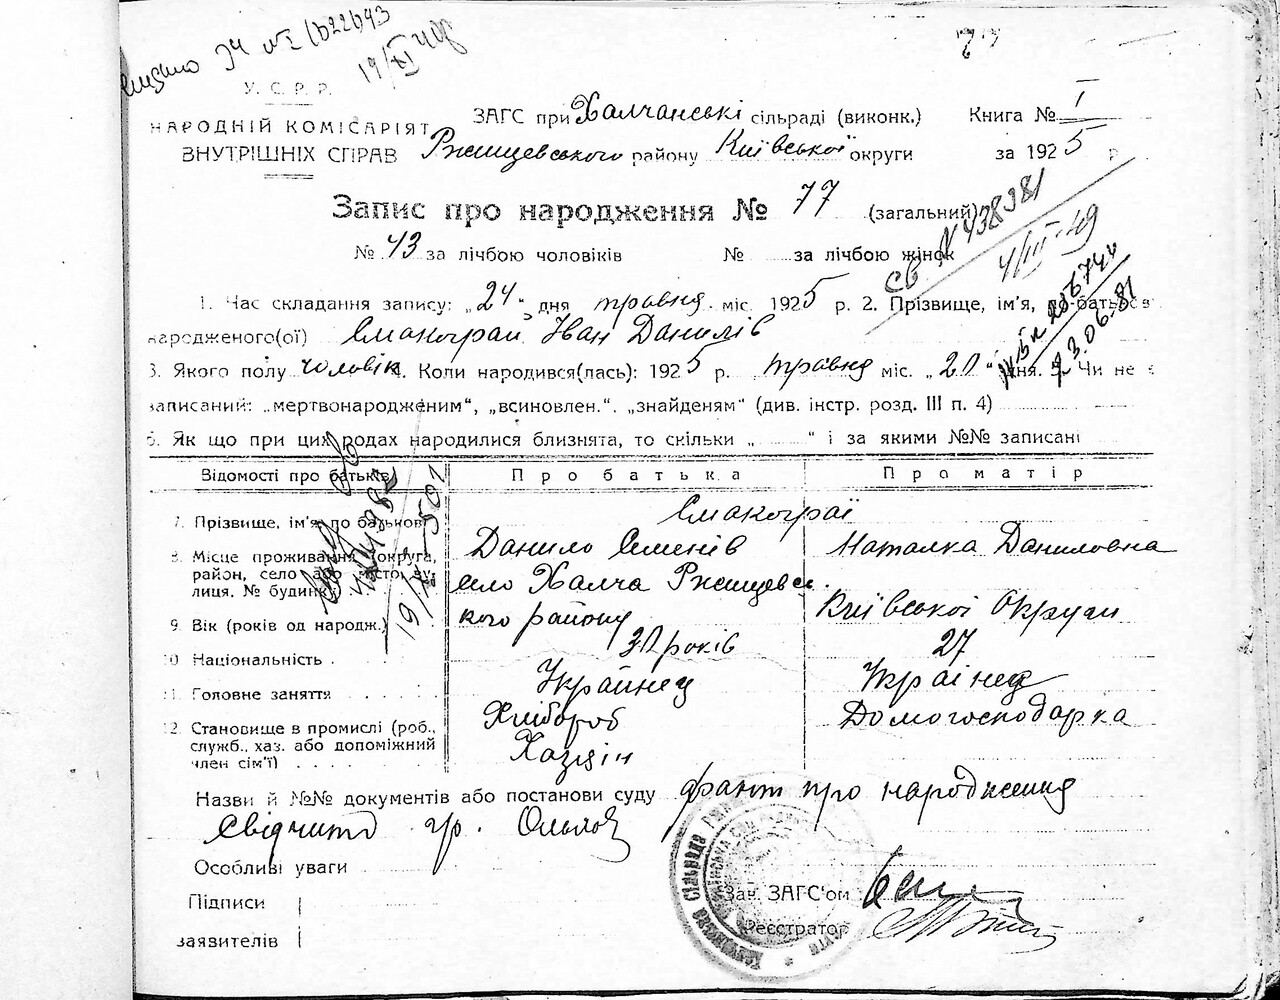 77
У. С. Р. Р.
НАРОДНІЙ КОМІСАРІЯТ
ВНУТРІШНІХ СПРАВ
ЗАГС при Халчанські сільраді (виконк.) Книга № I
Ржищевського району Київської округи за 1925 р
Запис про народження № 77 (загальний)
№ 43 за лічбою чоловіків № за лічбою жінок
СВ N 438381
4/III-49
1. Час складання запису: „24“ дня травня міс. 1925 р. 2. Прізвище, ім'я, по-батьков
народженого(ої) Смакограй Іван Данилів
3. Якого полу чоловік 4. Коли народився(лась): 1925 р. травня міс. „20“ дня. 5. Чи не є
записаний: „мертвонародженим“, „всиновлен.“. „знайденям“ (див. інстр. розд. III п. 4)
6. Як що при цих родах народилися близнята, то скільки „ “ і за якими №№ записані
23.06.81
Відомості про батьків Про батька Про матір
7. Прізвище, ім'я, по батькові Смакограї
Данило Семенів Наталка Даниловна
8. Місце проживання округа, район, село або місто, вулиця. № будинку
село Халча Ржищевсь
кого району Київської Округи
9. Вік (років од народж.) 30 років 27
10 Національність Українец Українец
11. Головне заняття Хлібороб Домогосподарка
12. Становище в промислі (роб., служб., хаз. або допоміжний член сім'ї) Хазяін
Назви й №№ документів або постанови суду факт про народження
свідчить гр.
Особливі уваги
Підписи
заявителів
Зав. ЗАГС'ом
Реєстратор